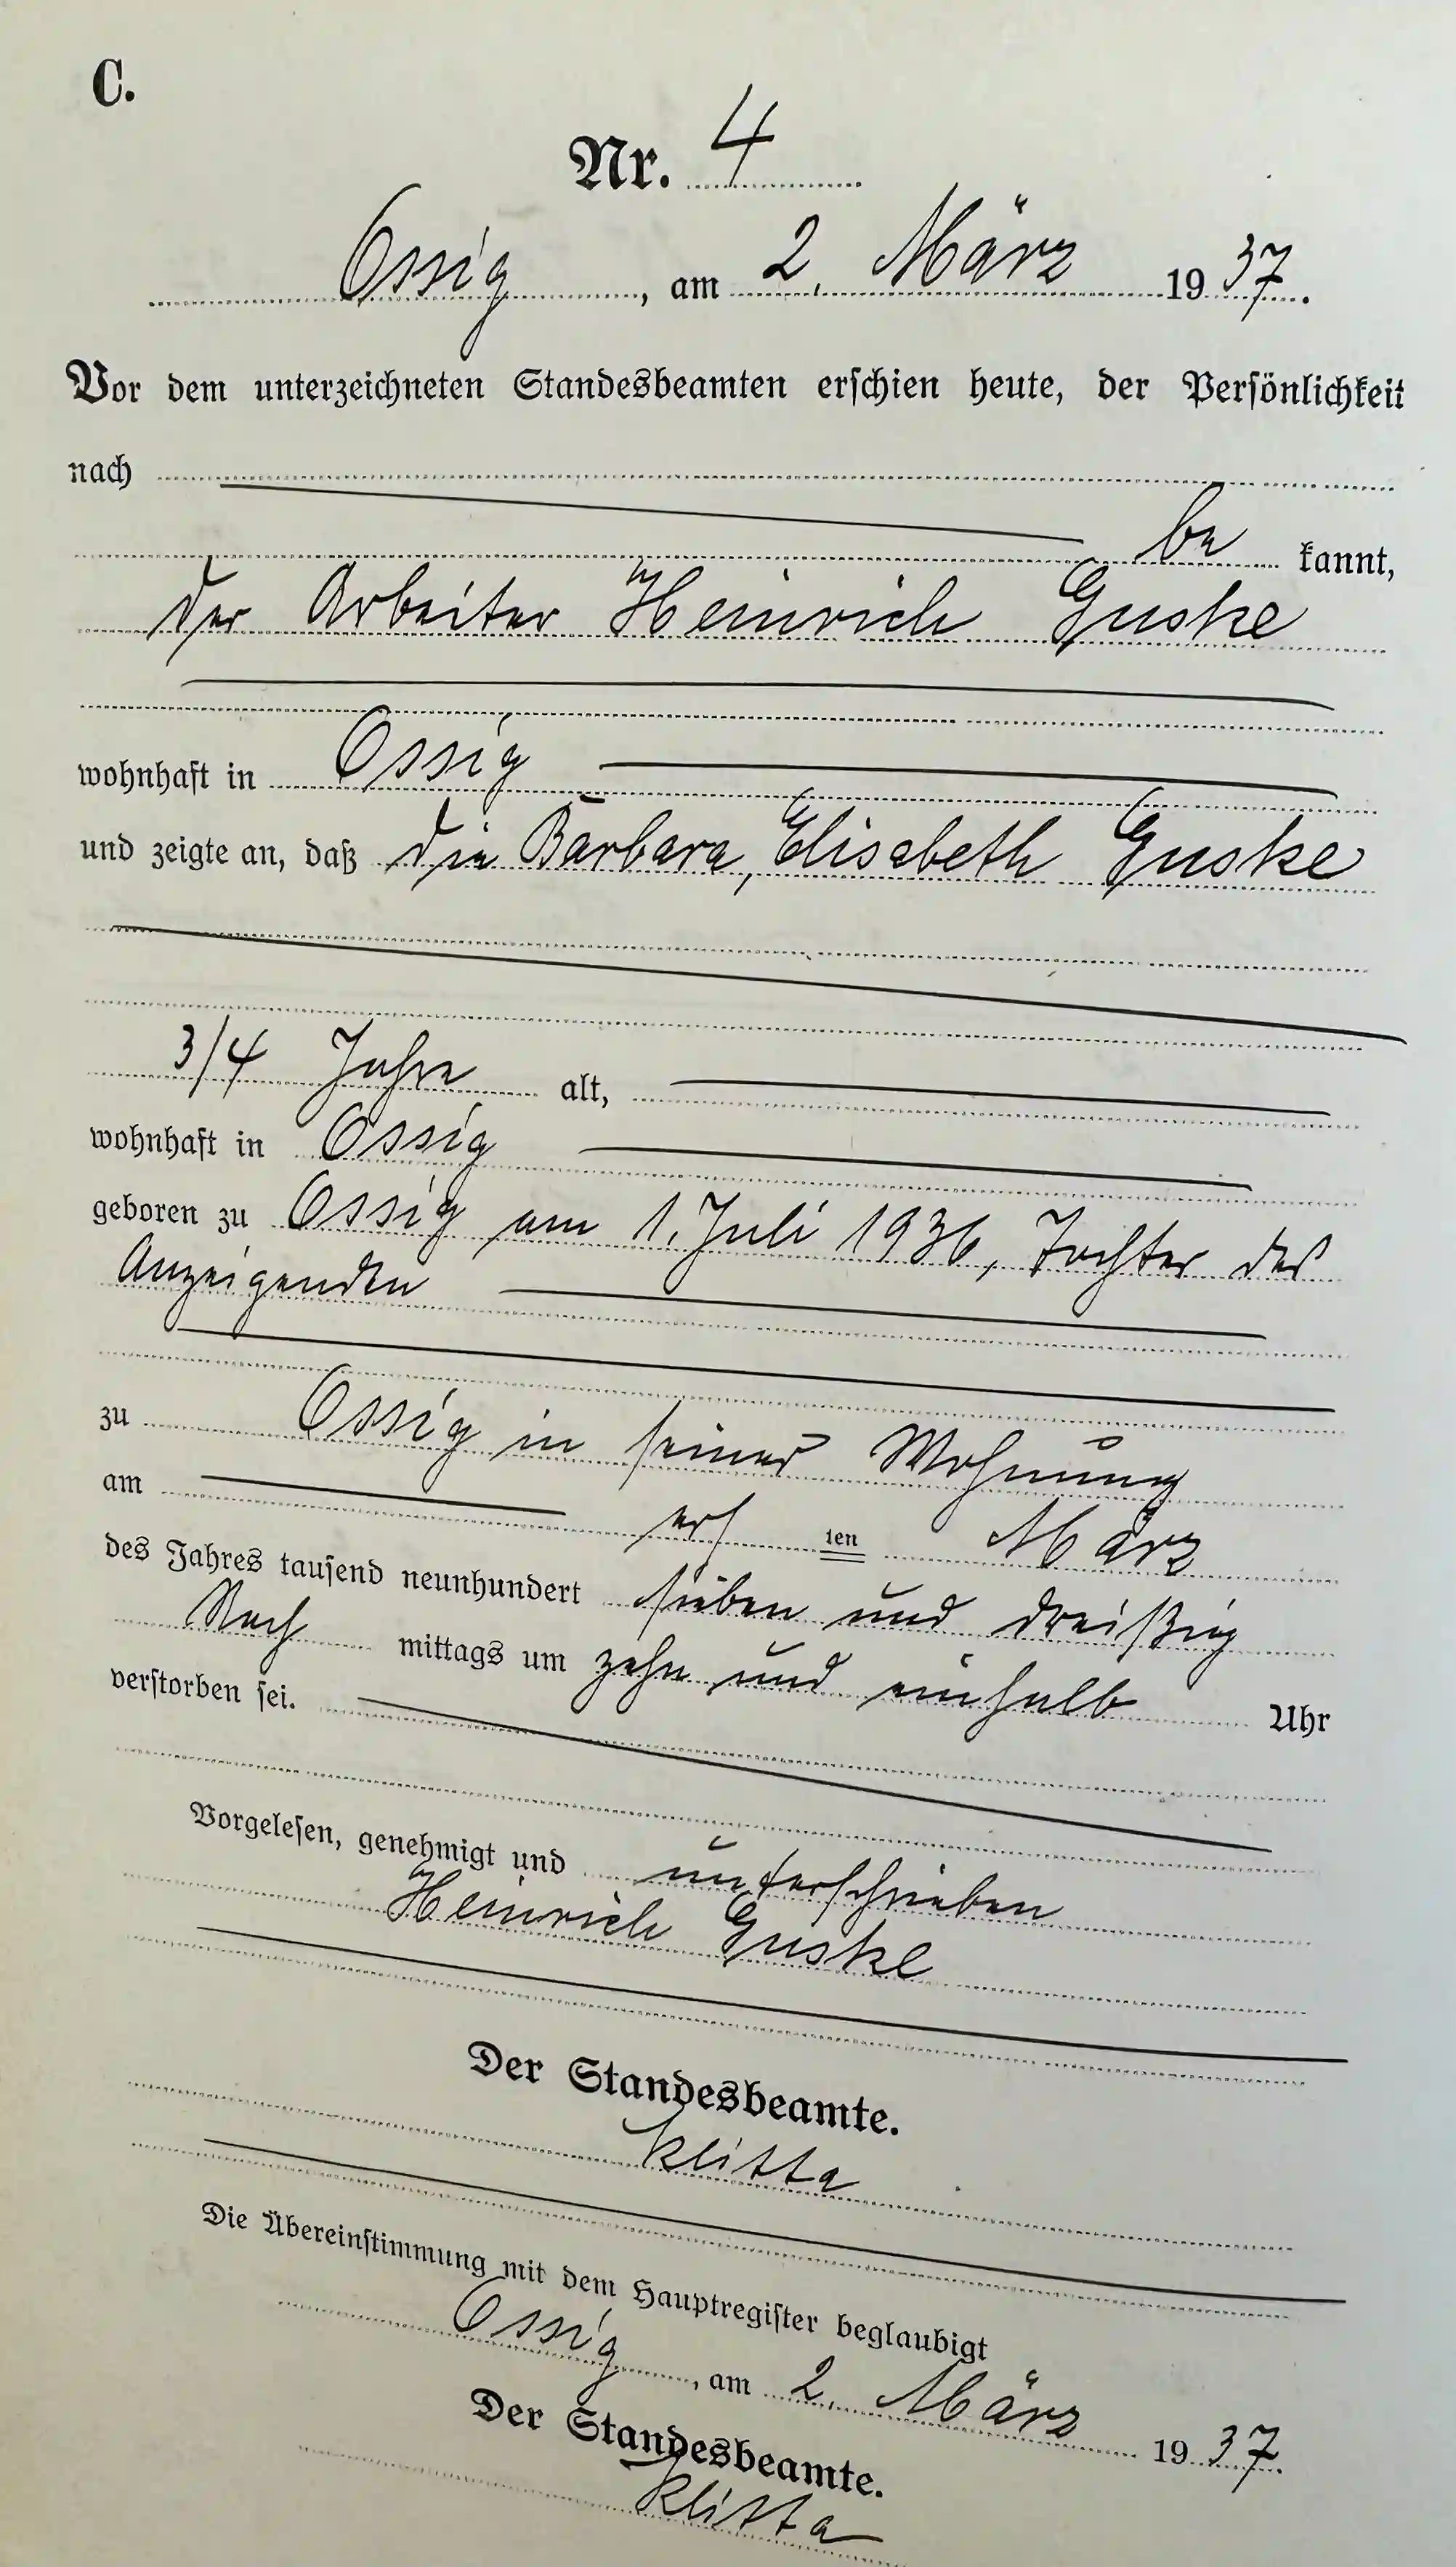 C.
Nr. 4
Ossig, am 2. März 1937.
Vor dem unterzeichneten Standesbeamten erschien heute, der Persönlichkeit
nach
be kannt,
der Arbeiter Heinrich Guske
wohnhaft in Ossig
und zeigte an, daß die Barbara, Elisabeth Guske
3/4 Jahre alt,
wohnhaft in Ossig
geboren zu Ossig am 1. Juli 1936, Tochter des
Anzeigenden
zu Ossig in seiner Wohnung
am ersten März
des Jahres tausend neunhundert sieben und dreißig
Nach mittags um zehn und einhalb Uhr
verstorben sei.
Vorgelesen, genehmigt und unterschrieben
Heinrich Guske
Der Standesbeamte.
Klitta
Die Übereinstimmung mit dem Hauptregister beglaubigt
Ossig, am 2. März 1937.
Der Standesbeamte.
Klitta